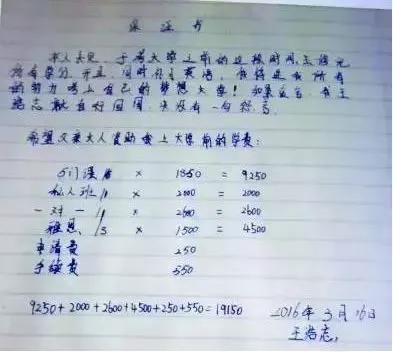 保证书
本人王浩志, 于考大学之前的这段时间, 志修完
所有学分, 并且, 同时补习英语, 会将近我所有
的努力考上自己的梦想大学! 如果反言, 我王
浩志就自好回国, 决没有一句怨言
希望父亲大人资助我上大学前的学费:
5门课 × 1850 = 9250
私人班/1 × 2000 = 2000
一对一/1 × 2600 = 2600
雅思/3 × 1500 = 4500
申请费 250
手续费 550
9250+2000+2600+4500+250+550=19150
2016年3月16日
王浩志